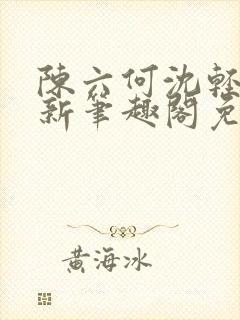 陳六何沈輕
新筆趣閣免
黃海冰